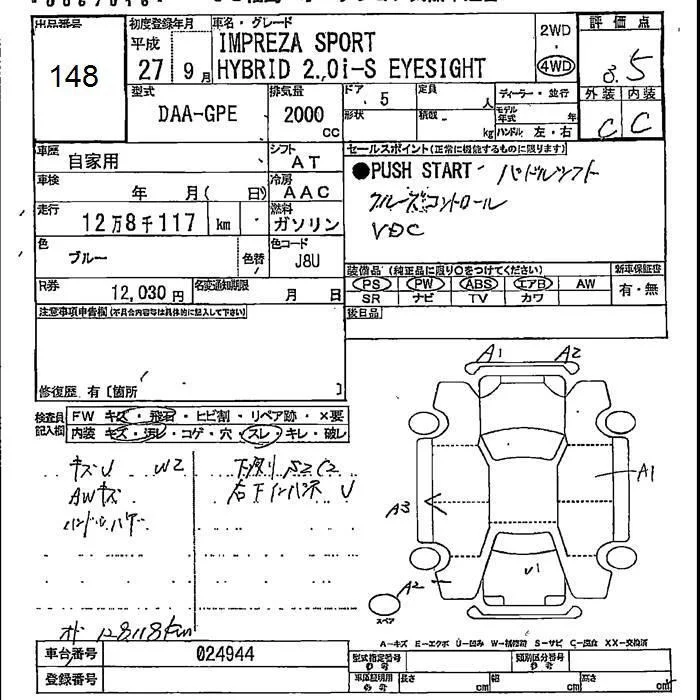 出品番号
148
初度登録年月
平成
27 9月
車名・グレード
IMPREZA SPORT
HYBRID 2.0i-S EYESIGHT
2WD
4WD
評価点
3.5
外装 内装
C C
型式
DAA-GPE
排気量
2000
CC
ドア
5
形状
定員
人
積載
kg
ディーラー・並行
モデル年式 年
ハンドル 左・右
車歴
自家用
シフト
AT
車検
年 月( 日)
冷房
AAC
走行
12万8千117 km
燃料
ガソリン
色
ブルー
色替
色コード
J8U
R券
12,030円
名変通知期限
月 日
セールスポイント(正常に機能するものに限ります)
●PUSH START パドルシフト
クルーズコントロール
VDC
装備品(純正品に限り○をつけてください)
PS PW ABS エアB AW
SR ナビ TV カワ
新車保証書
有・無
後日品
注意事項申告欄(不具合内容等は具体的に記入して下さい)
修復歴 有〔箇所 〕
検査員記入欄
FW キズ・飛石・ヒビ割・リペア跡・×要
内装 キズ・汚レ・コゲ・穴・スレ・キレ・破レ
キズU W2
AWキズ
下廻りS2C2
右下インパネ U
オド 128118km
A1
A2
A1
A3
U1
A2
スペア
A-キズ E-エクボ U-凹み W-補修跡 S-サビ C-腐食 XX-交換済
車台番号
024944
登録番号
型式指定番号
類別区分番号
長さ cm
幅 cm
高さ cm